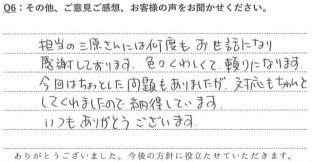 Q6：その他、ご意見ご感想、お客様の声をお聞かせください。
担当の三原さんには何度もお世話になり
感謝しております。色々くわしくて、頼りになります。
今回はちょっとした問題もありましたが、対応もちゃんと
してくれましたので納得しています。
いつもありがとうございます。
ありがとうございました。今後の方針に役立たせていただきます。